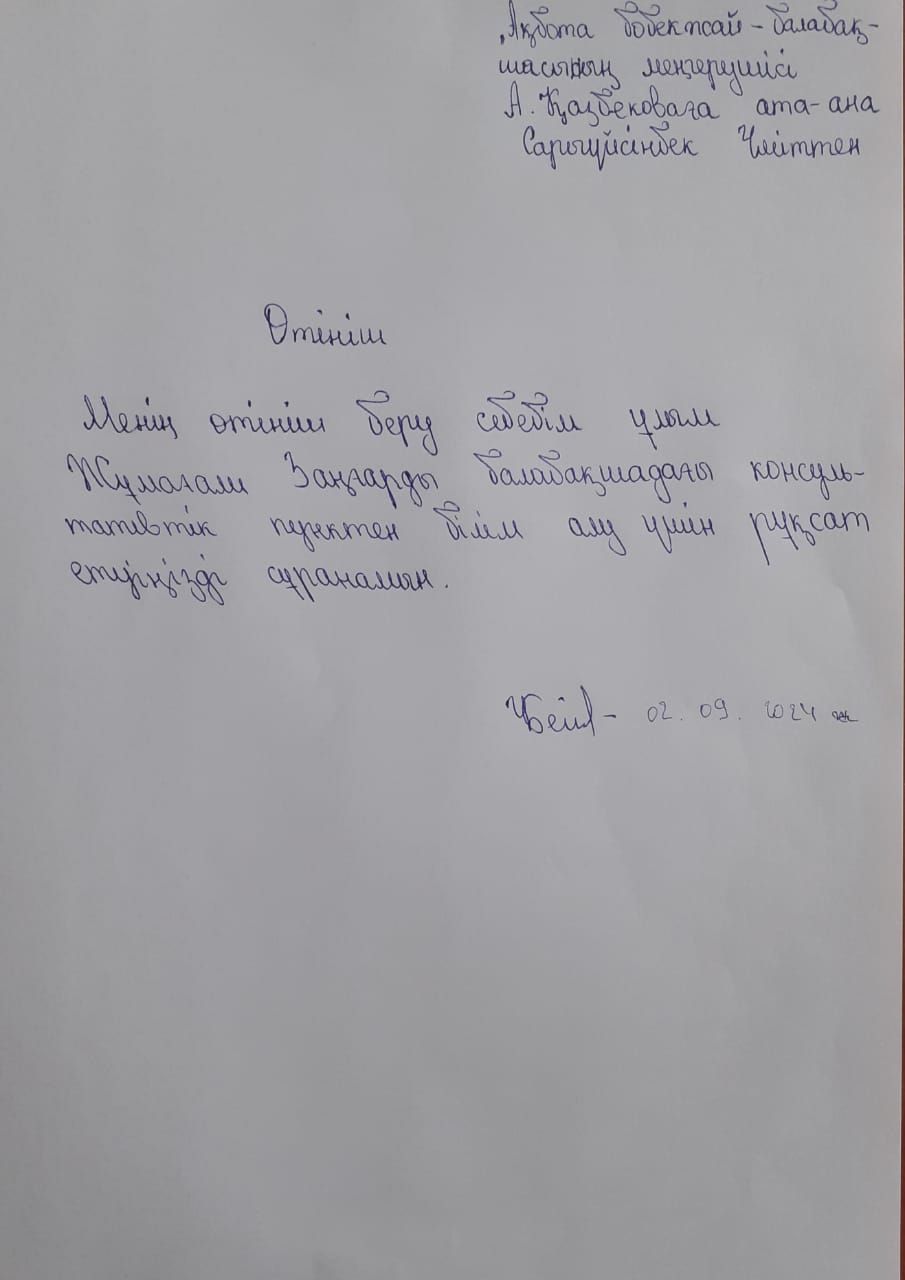 „Ақбота бөбекжай-балабақ-
шасының меңгерушісі
А. Қазбековаға ата-ана
Сарыүйсінбек
Өтініш
Менің өтініш беру себебім ұлым
Жұмағали Заңғарды балабақшадағы консуль-
тативтік пунктен білім алу үшін рұқсат
етуіңізді сұранамын.
02. 09. 2024